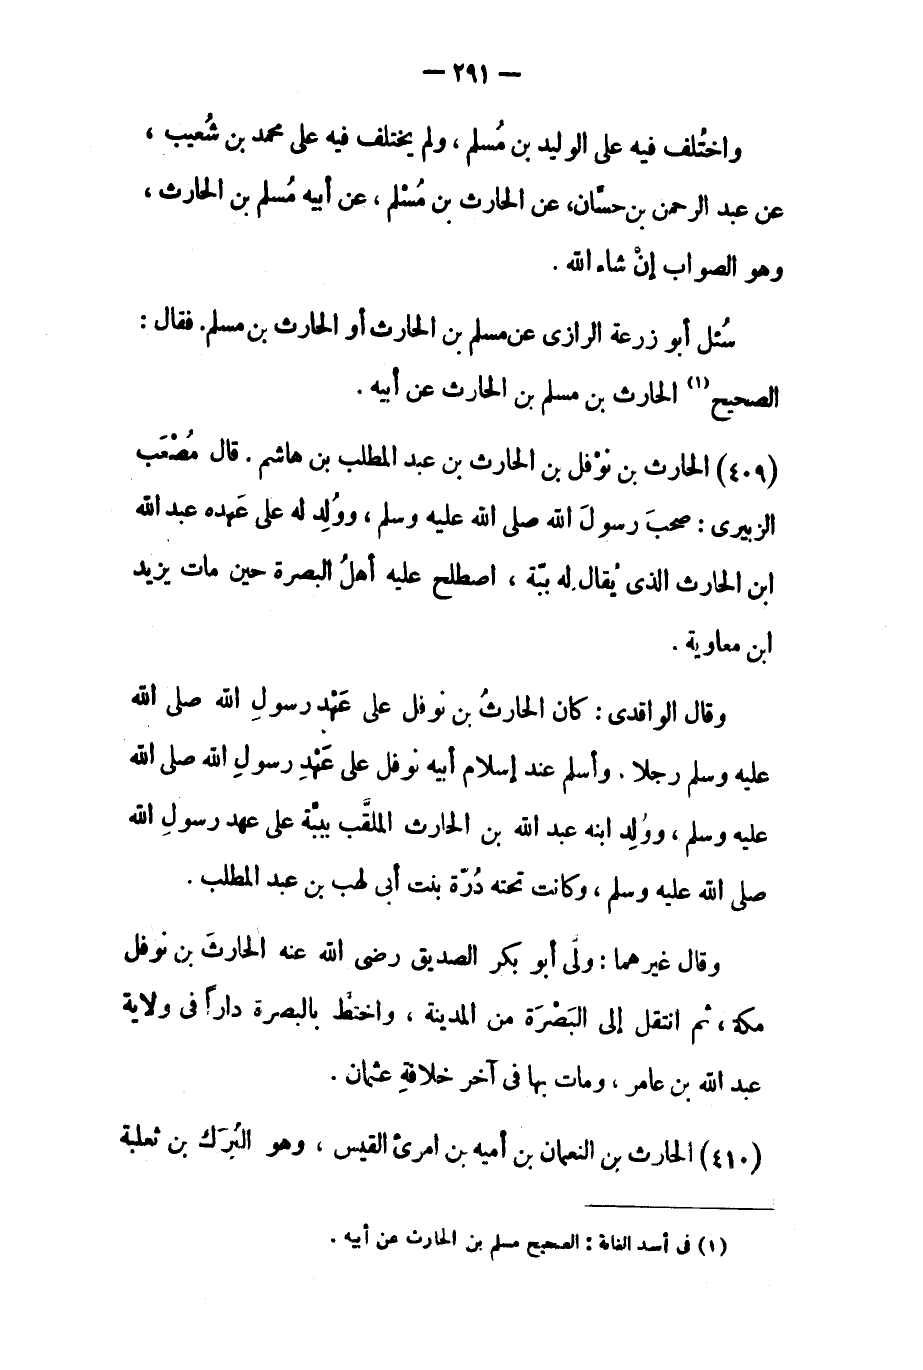 — ٢٩١ —
واختُلف فيه على الوليد بن مُسلم ، ولم يختلف فيه على محمد بن شُعيب ،
عن عبد الرحمن بن حسَّان، عن الحارث بن مُسْلم ، عن أبيه مُسلم بن الحارث ،
وهو الصواب إنْ شاء الله .
سُئل أبو زرعة الرازى عن مسلم بن الحارث أو الحارث بن مسلم. فقال :
الصحيح(١) الحارث بن مسلم بن الحارث عن أبيه .
(٤٠٩) الحارث بن نوْفل بن الحارث بن عبد المطلب بن هاشم . قال مُصْعَب
الزبيرى : صحبَ رسولَ الله صلى الله عليه وسلم ، ووُلِد له على عَهده عبد الله
ابن الحارث الذى يُقال له ببّة ، اصطلح عليه أهلُ البصرة حين مات يزيد
ابن معاوية .
وقال الواقدى : كان الحارثُ بن نوفل على عَهْد رسولِ الله صلى الله
عليه وسلم رجلا . وأسلم عند إسلام أبيه نوفل على عَهْدِ رسولِ الله صلى الله
عليه وسلم ، ووُلِد ابنه عبد الله بن الحارث الملقَّب ببَّة على عهد رسولِ الله
صلى الله عليه وسلم ، وكانت تحته دُرّة بنت أبى لهب بن عبد المطلب .
وقال غيرهما : ولَّى أبو بكر الصديق رضى الله عنه الحارثَ بن نوفل
مكة ، ثم انتقل إلى البَصْرَة من المدينة ، واختطّ بالبصرة داراً فى ولاية
عبد الله بن عامر ، ومات بها فى آخر خلافةِ عثمان .
(٤١٠) الحارث بن النعمان بن أميه بن امرئ القيس ، وهو البُرَك بن ثعلبة
(١) فى أسد الغابة : الصحيح مسلم بن الحارث عن أبيه .